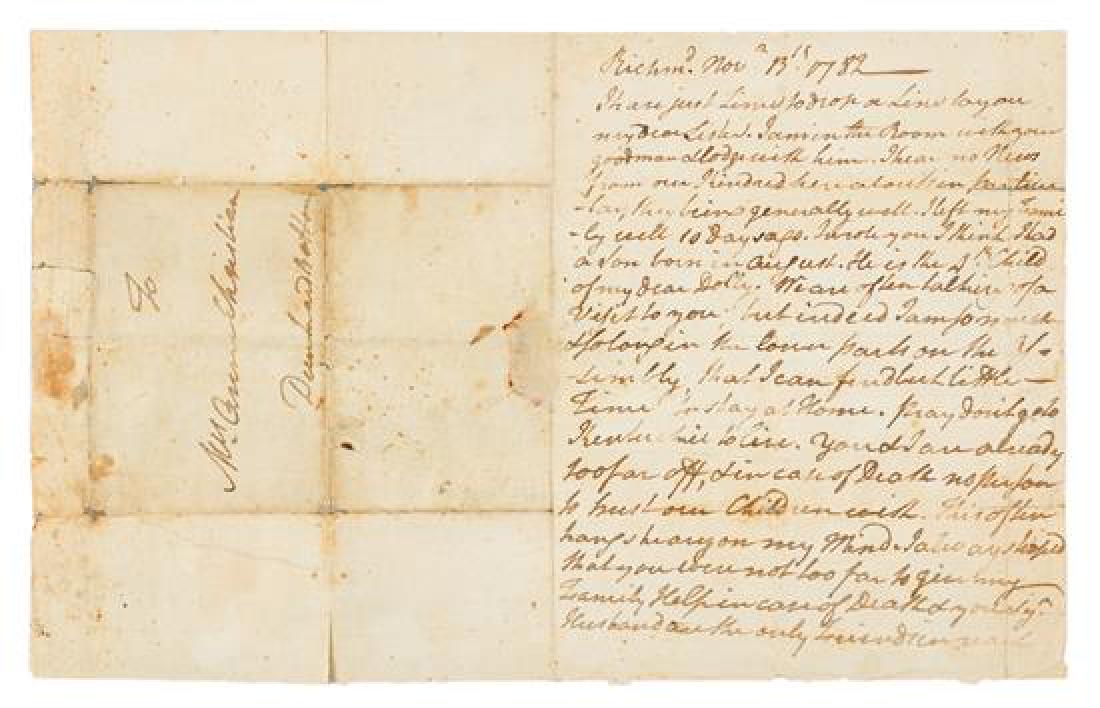 To
Mrs. Ann Christian
Richmd. Novr. 13th 1782
I have just time to drop a Line to you
my dear Sister. I am in the Room with your
goodman & lodge with him. I hear no News
from our Kindred here abouts in particu
-lar, they being generally well. I left my Fami
-ly well 10 Days ago. I wrote you I think I had
a son born in August. He is the Child
of my dear Dolly. We are often talking of a
Visit to you but indeed I am so much
& so long in the lower parts on the As-
-sembly, that I can find but little
Time to stay at Home. Pray don't go to
Kentuckie to live. You & I are already
too far off, & in case of Death no person
to trust our Children with. This often
hangs heavy on my Mind. I always hoped
that you were not too far to give my
Family Help in case of Death & you & yr.
Husband are the only Friends